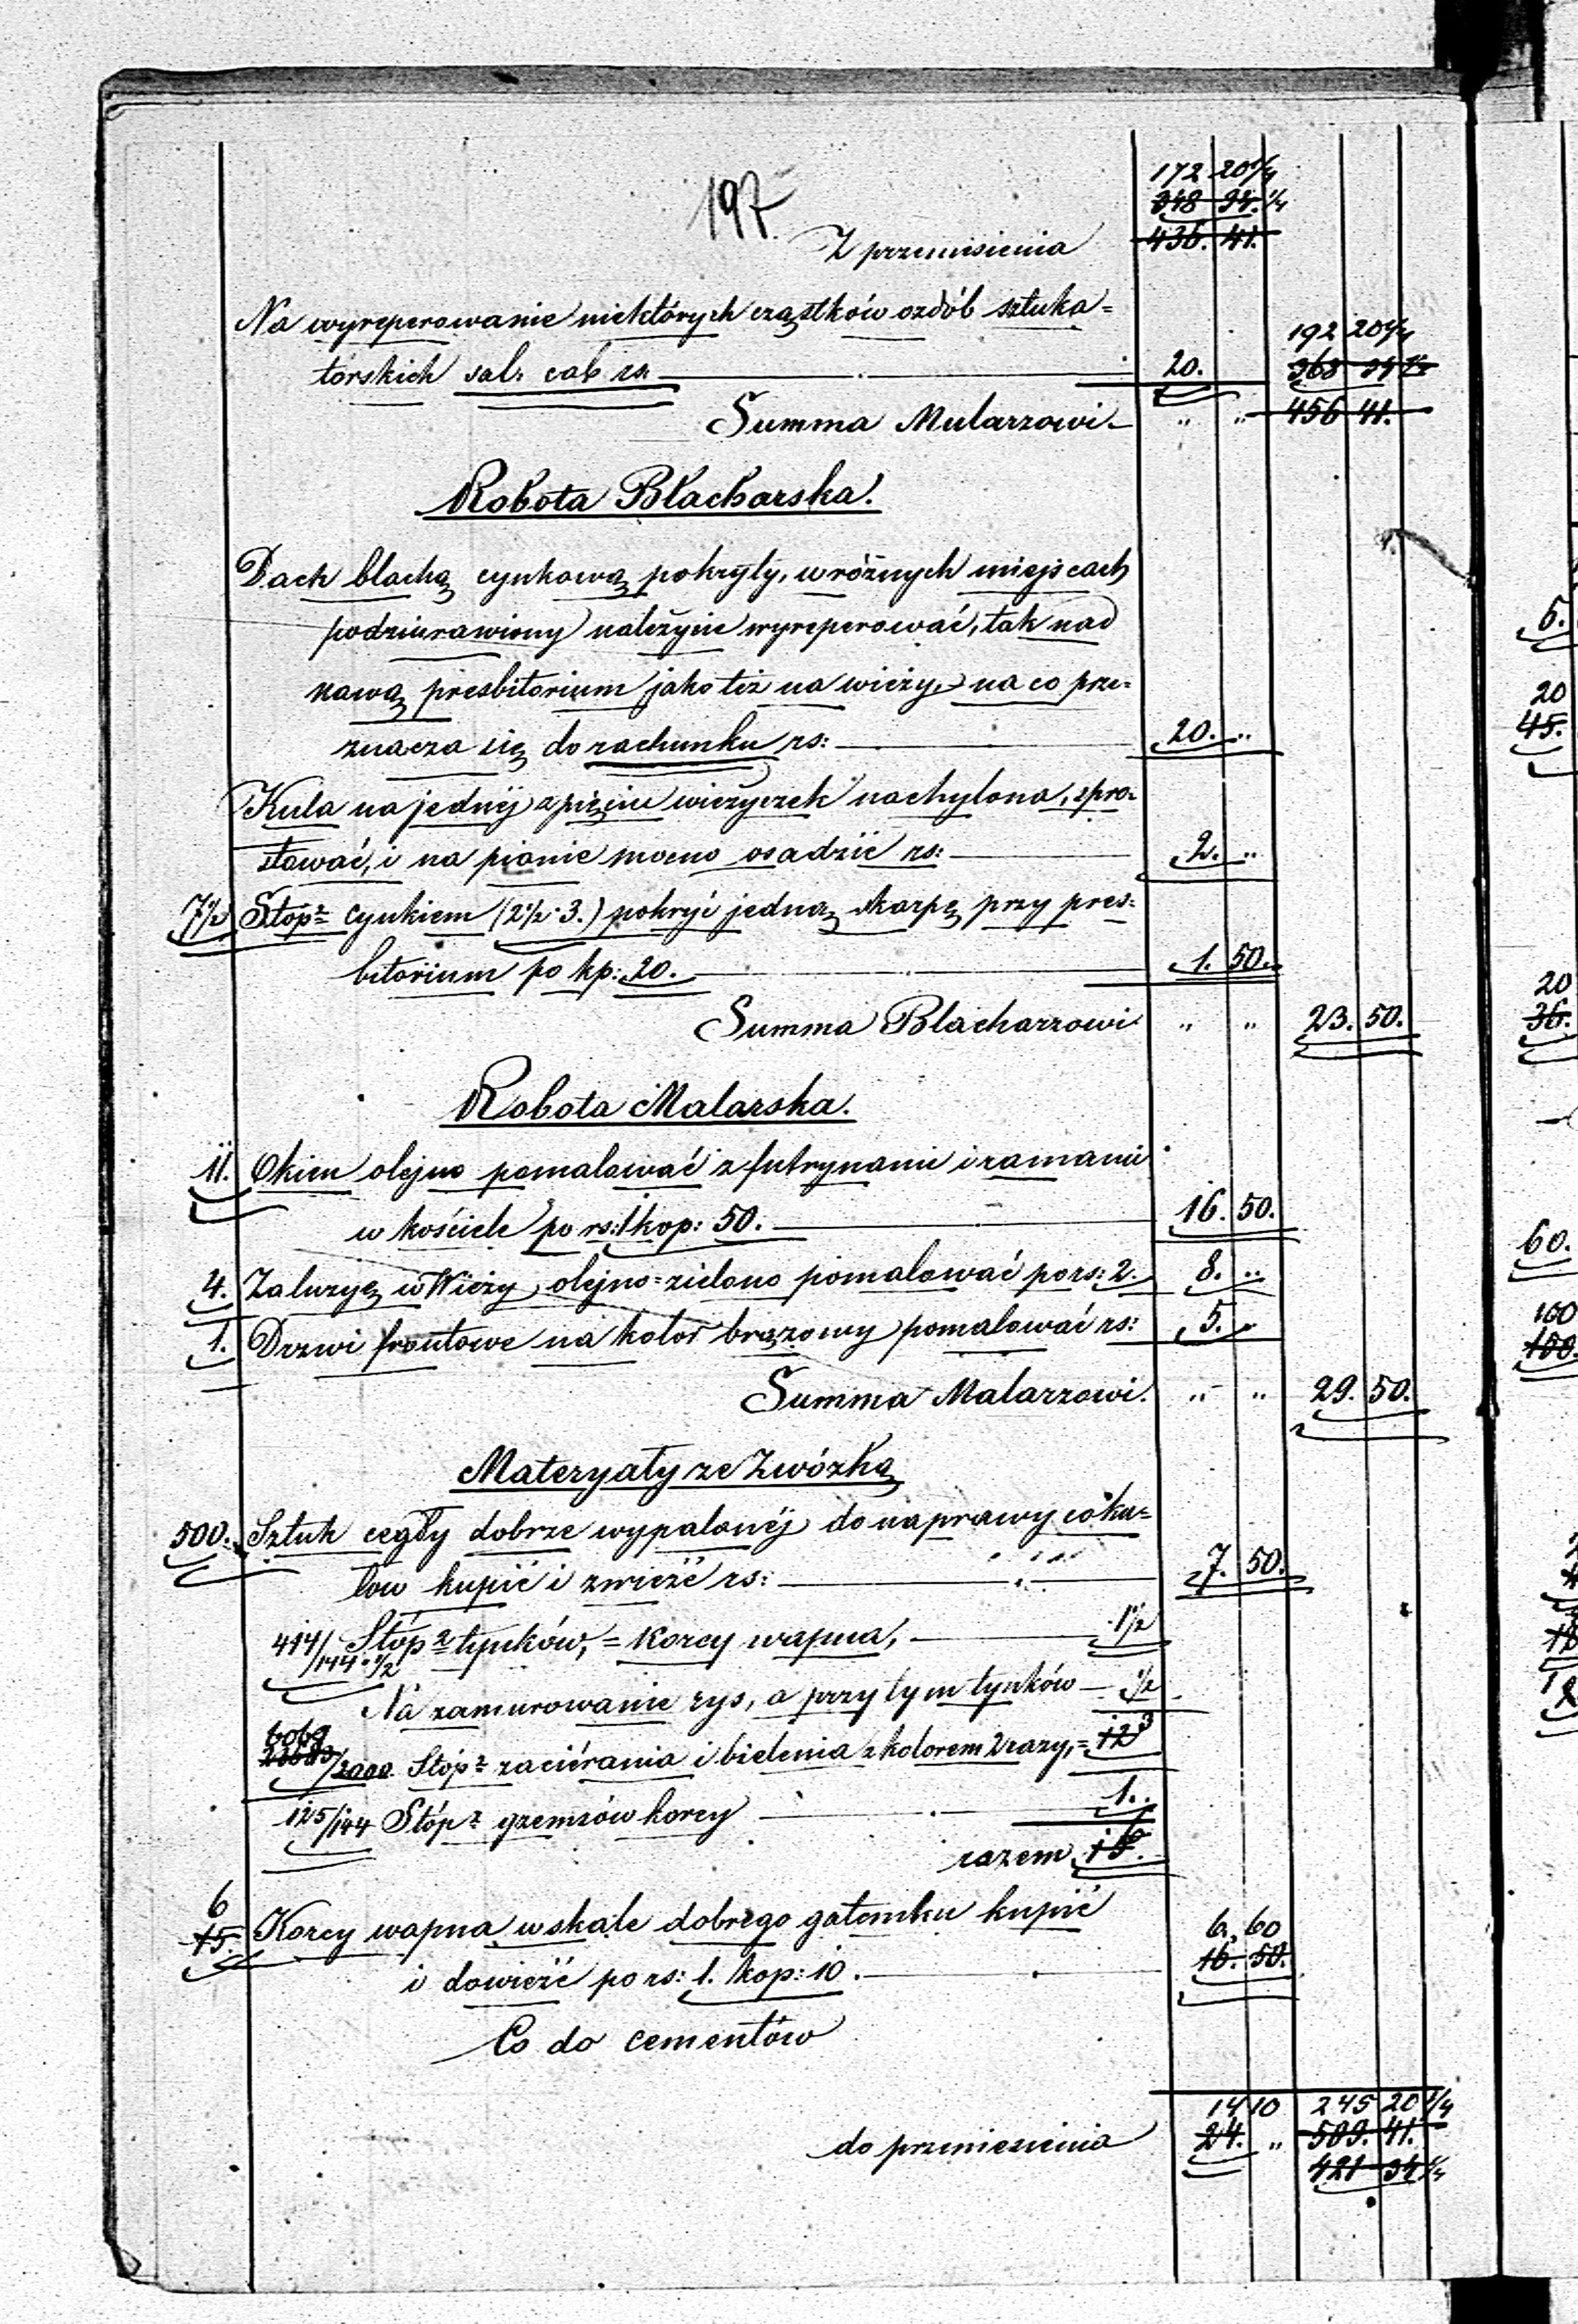 197.
172 20 1/4
348 34. 1/4
Z przeniesienia 436. 41.
Na wyreperowanie niektórych cząstków ozdób sztuka=
192 20 1/4
torskich salv. cab rs: 20. 368 34 1/4
Summa Mularzowi „ „ 456 41.
Robota Blacharska.
Dach blachą cynkową pokryty, w różnych miejscach
podziurawiony należycie wyreperować, tak nad
nawą, presbitorium jako też na wieży, na co prze=
znacza się do rachunku rs: 20. „
Kula na jednéj z pięciu wieżyczek nachylona, spro=
stować, i na pionie mocno osadzić rs: 2. „
7 1/2 Stóp 2 cynkiem (2 1/2 · 3.) pokryć jedną skarpę przy pres=
bitorium po kp: 20. 1. 50.
Summa Blacharzowi „ „ 23. 50.
Robota Malarska.
11. Okien olejno pomalować z futrynami i ramami
w kościele po rs: 1 kop: 50. 16. 50.
4. Zaluzyę w Wieży olejno=zielono pomalować po rs: 2. 8. „
1. Drzwi frontowe na kolor brązowy pomalować rs: 5. „
Summa Malarzowi. „ „ 29. 50.
Materyały ze Zwózką
500. Sztuk cegły dobrze wypalonéj do naprawy coku=
łow kupić i zwieźć rs: 7. 50.
414/144 · 1/2 Stóp 2 tynków, = korcy wapna, 1 1/2
Na zamurowanie rys, a przy tym tynków 1/2
6069
/2000 Stóp 2 zaciérania i bielenia z kolorem 2 razy, = 12 3
125/144 Stóp 2 gzemsów korcy 1.
razem 15. 6
6
15. Korcy wapna w skale dobrego gatonku kupić 6. 60
i dowieźć po rs: 1. kop: 10. 16. 50.
Co do cementów
14 10 245 20 1/4
do przeniesienia 24. „ 509. 41.
421 34 1/4